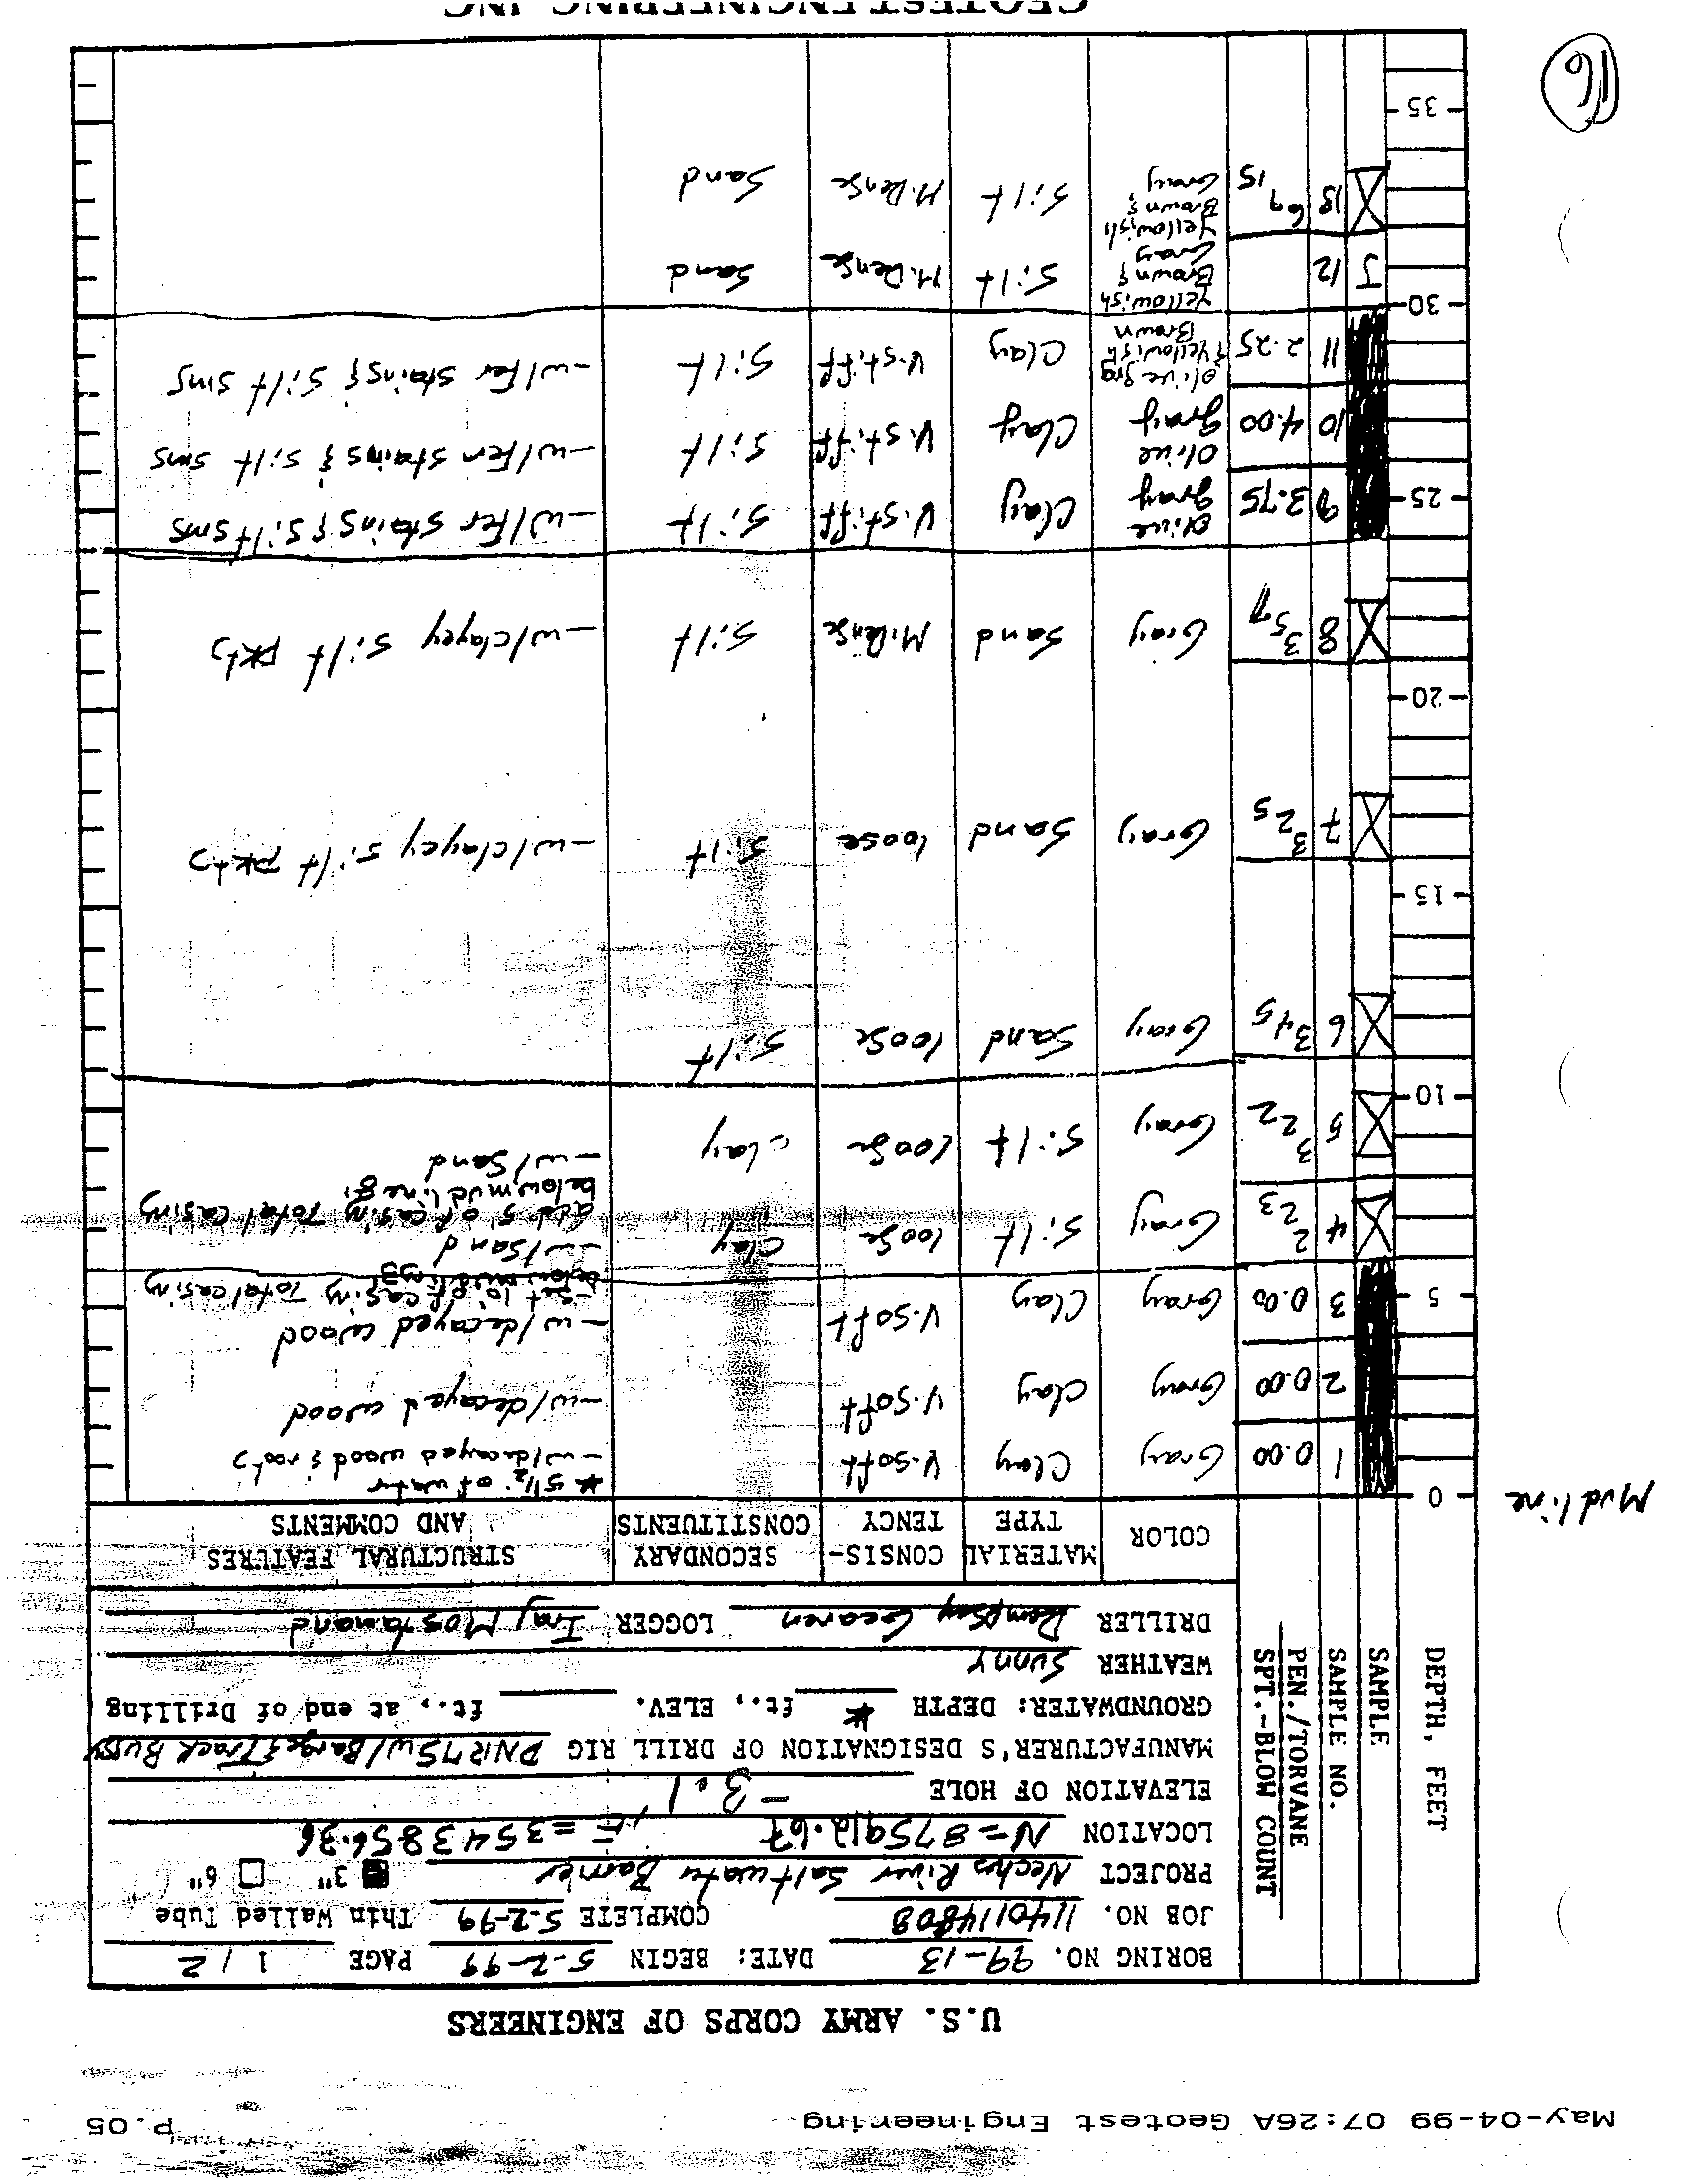 May-04-99 07:26A Geotest Engineering P.05
U.S. ARMY CORPS OF ENGINEERS
BORING NO. 99-13 DATE: BEGIN 5-2-99 PAGE 1 / 2
JOB NO. 1140114808 COMPLETE 5-2-99 Thin Walled Tube
PROJECT Neches River Saltwater Barrier 3" 6"
LOCATION N=875912.67, E=3543856.36
ELEVATION OF HOLE -3.1
MANUFACTURER'S DESIGNATION OF DRILL RIG w/Barge & Track Buggy
GROUNDWATER: DEPTH * ft., ELEV. ft., at end of Drilling
WEATHER Sunny
DRILLER Dempsay Gearen LOGGER Iraj Mostamand
DEPTH, FEET
SAMPLE
SAMPLE NO.
PEN./TORVANE
SPT.-BLOW COUNT
COLOR MATERIAL TYPE CONSIS-TENCY SECONDARY CONSTITUENTS STRUCTURAL FEATURES AND COMMENTS
Mudline 0
* 5 1/2' of water
1 0.00 Gray Clay V.Soft -w/decayed wood & roots
2 0.00 Gray Clay V.Soft -w/decayed wood
5 3 0.00 Gray Clay V.Soft -w/decayed wood
-Set 10' of casing Total casing
below mudline
4 2 2 3 Gray Silt loose Clay -w/Sand
add 5' of casing Total casing
below mudline 8'
10 5 3 2 2 Gray Silt loose clay -w/Sand
6 3 4 5 Gray Sand loose Silt
15
7 3 2 5 Gray Sand loose Silt -w/clayey silt pkts
20
8 3 5 7 Gray Sand M.Dense Silt -w/clayey silt pkts
25 9 3.75 Olive gray Clay V.stiff Silt -w/fer stains & silt sms
10 4.00 Olive gray Clay V.stiff Silt -w/fer stains & silt sms
11 2.25 olive gray & Yellowish Brown Clay V.stiff Silt -w/fer stains & silt sms
30
J 12 Yellowish Brown & Gray Silt M.Dense Sand
13 6 9 15 Yellowish Brown & Gray Silt M.Dense Sand
35
16
GEOTEST ENGINEERING INC